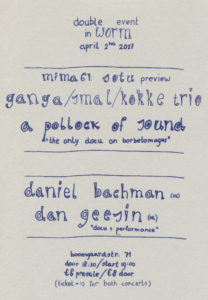 double event
in WORM
april 2nd 2017
mima61: sotu preview
ganga/smal/kokke trio
a pollock of sound
"the only docu on borbetomagus"
daniel bachman (us)
dan geesin (nl)
"docu + performance"
boomgaardstr. 71
door 18:30/start 19:00
€6 presale/€8 door
(ticket is for both concerts)